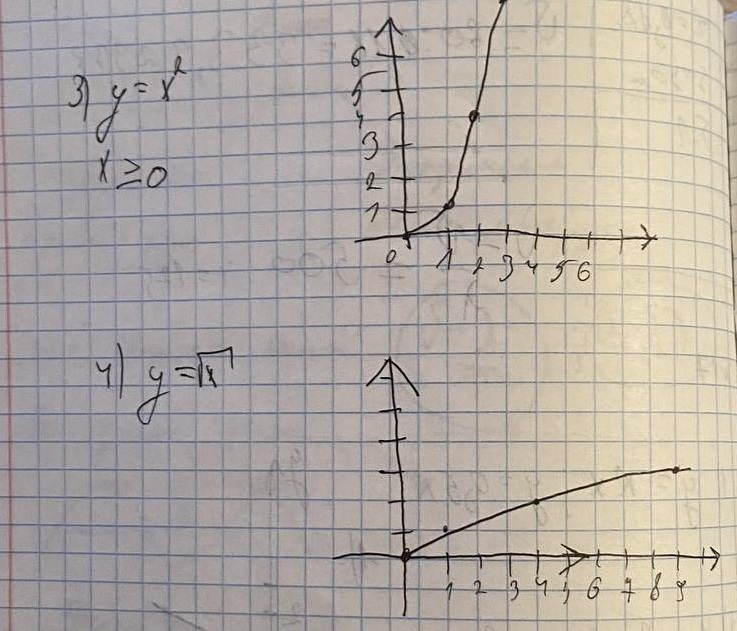 3) y = x²
x ≥ 0
6
5
4
3
2
1
0 1 2 3 4 5 6
4) y = √x
1 2 3 4 5 6 7 8 9